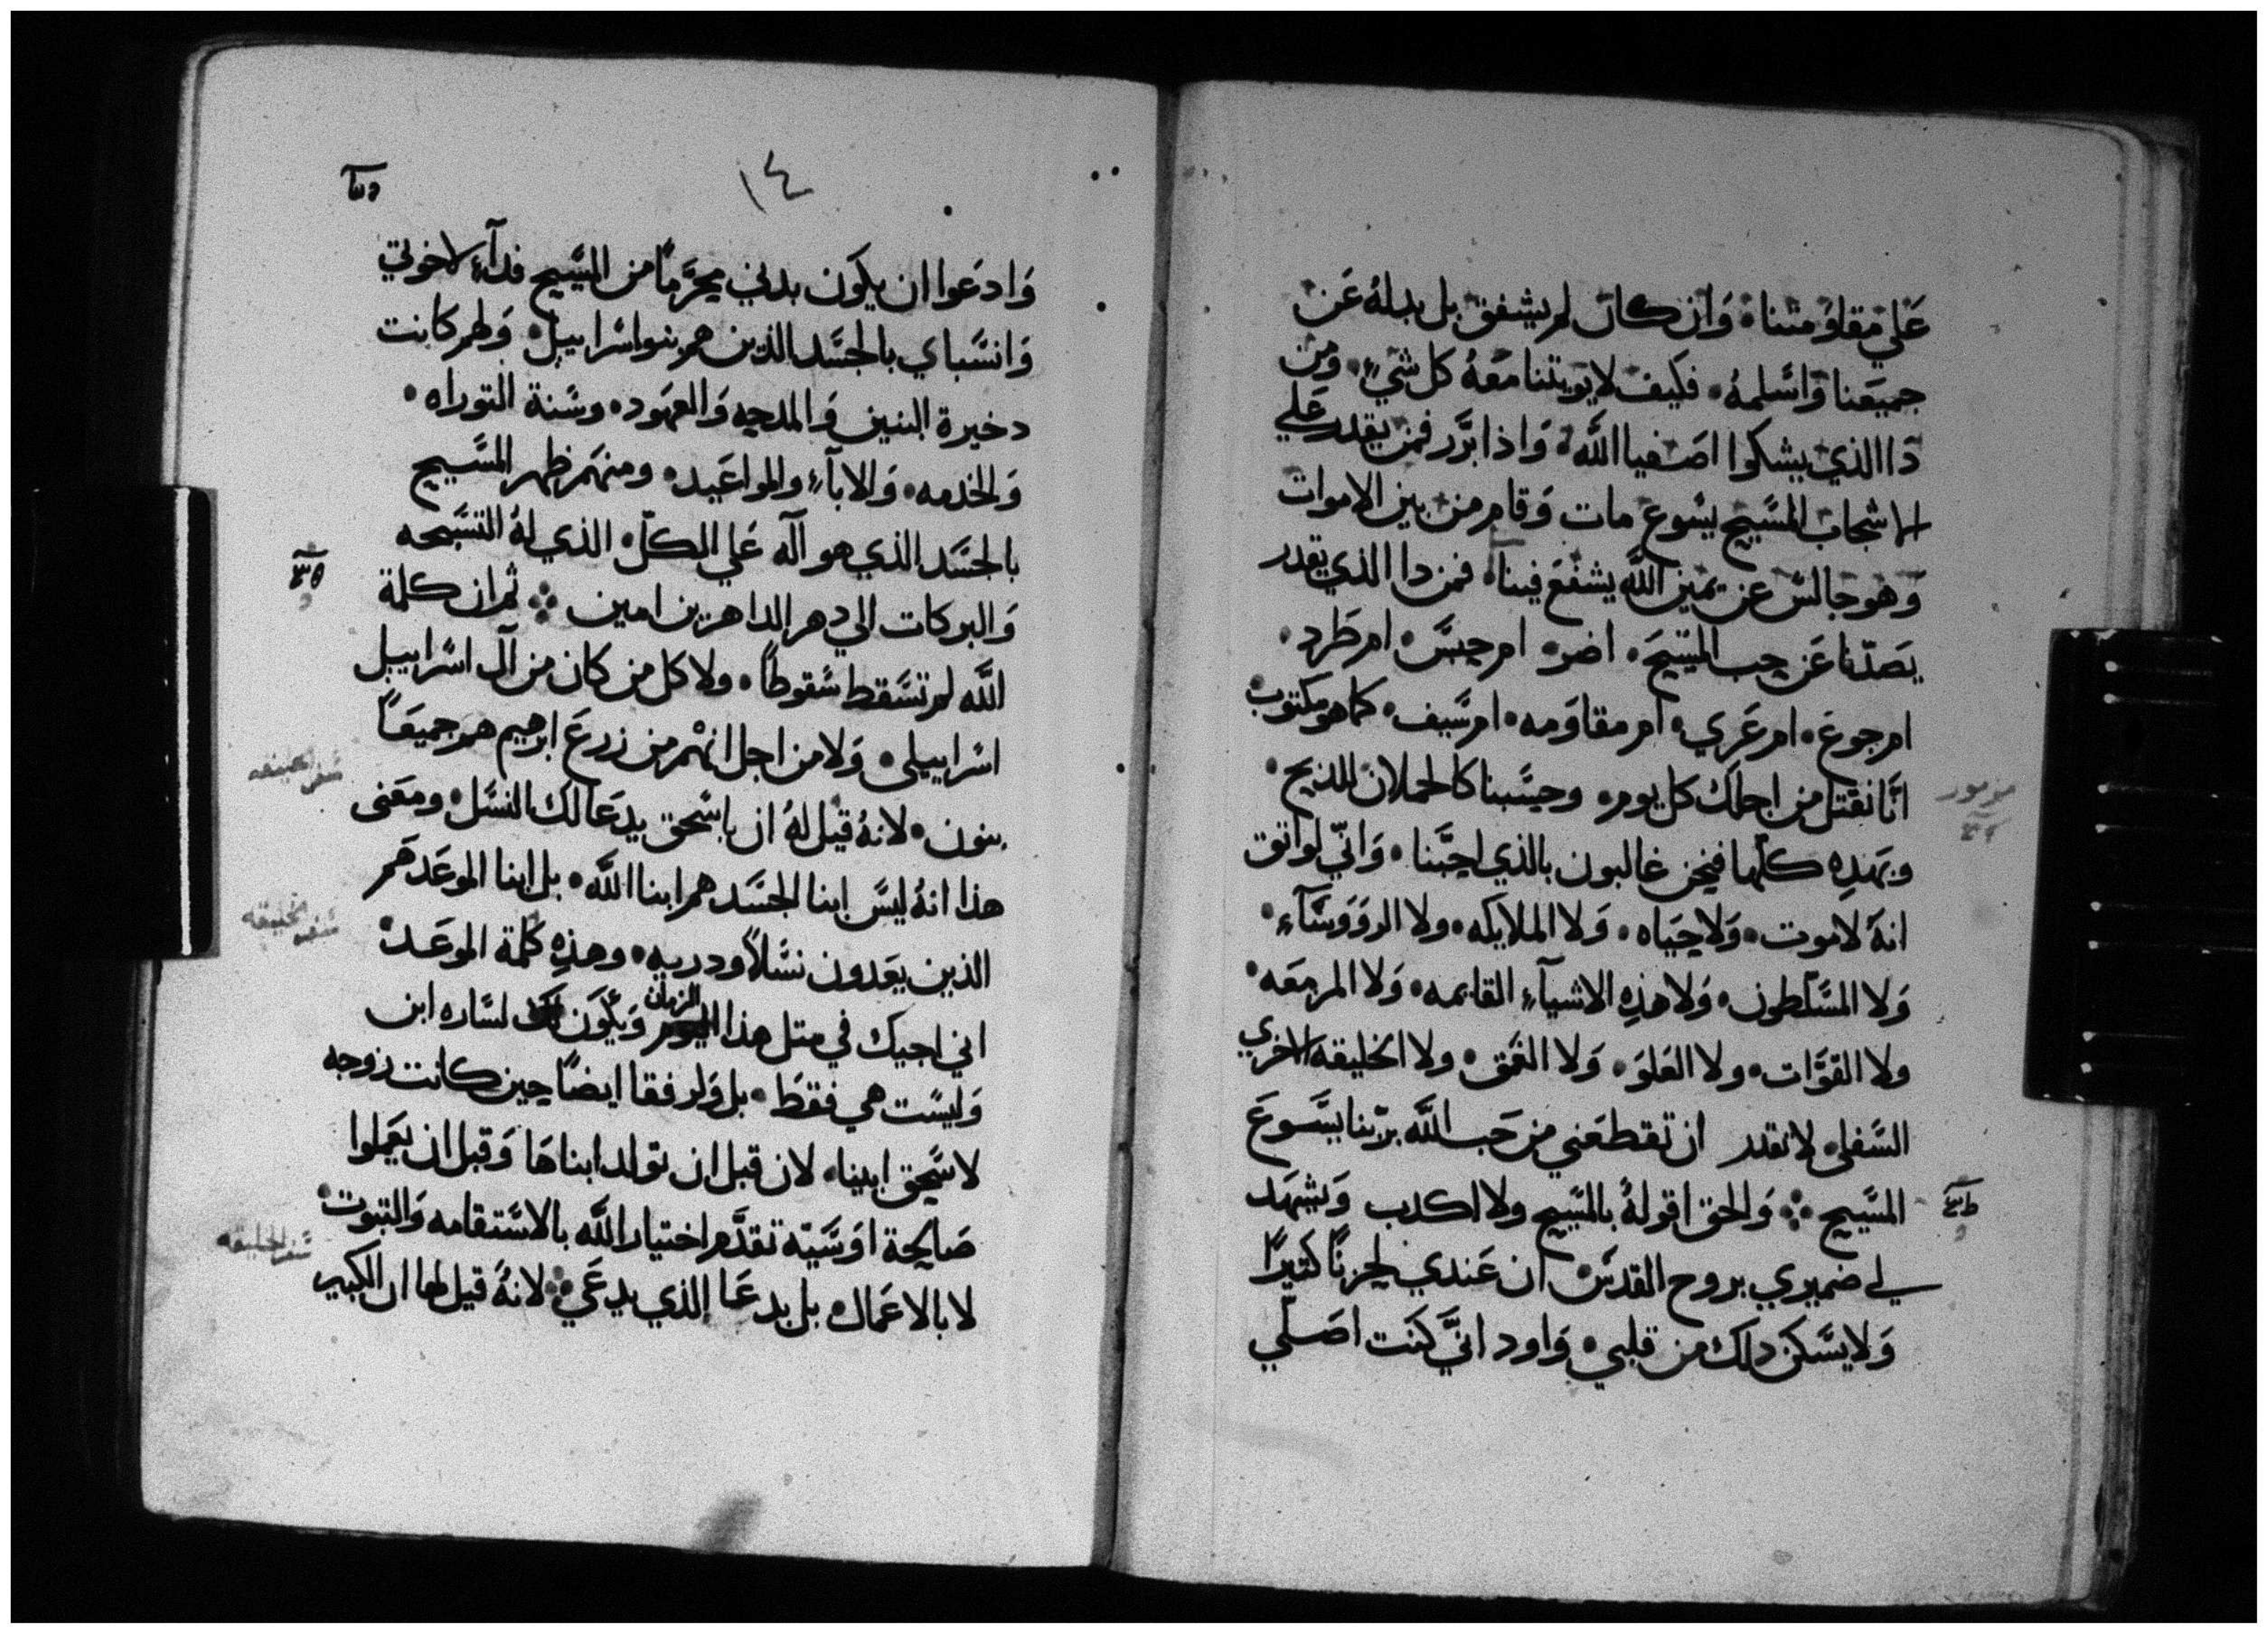 عَلي مقاومتنا• وَان كان لم يشفق بل بدلهُ عَن
جميعَنا وَاسَلمهُ• فكيف لا يويتنا معَهُ كل شيءٍ• وَمن
دَا الذي يشكوا اصَفيا اللَّه• وَاذا ابرَّر فمن يقدر عَلي
الاشجاب المسَّيح يسَوع مات وَقام من بين الاموات
وَهو جالسَ عن يمين اللَّه يشفعَ فينا• فمن دا الذي يقدر
يصَدّنا عَن حب المسَّيحَ• اضر• ام حبسَ• ام طَرد•
ام جوع• ام عَري• ام مقاوَمه• ام سَّيف• كما هو مكتوب
انَّا نقتل من اجلك كل يوم• وحسَّبنا كالحملان للدبح•
مزمور
وبهَدِه كلّها فنحن غالبون بالذي احبَّنا• وَانّي لواتق
انهُ لا موت• وَلا حَياه• وَلا الملايكه• ولا الروَوَسَّآءِ•
وَلا المسَّلطون• وَلا هذِه الاشيآءِ القايمه• وَلا المزمعَه•
ولا القوَّات• ولا العَلوَ• وَلا العَمق• ولا الخليقه الاخري
السَّفلى• لا تقدر ان تقطعَني من حَب اللَّه بربّنا يسَّوعَ
المسَّيح ⁘ وَالحق اقولهُ بالمسَّيح ولا اكدب وَيشهَد
لي ضميري بروح القدسَ• ان عَندي لحزنًا كتيرًا
وَلا يسَّكن دلك من قلبي• وَاود انيَّ كنَت اصَلّي
١٤
وَادعَوا ان يكوَن بدني محَرَّمًا من المسَّيح فدآءً لاخوتي
وَانسَّباي بالجسَّد الذين هم بنوا اسَرابيل• وَلهم كانت
دخيرة البنين وَالمدحه وَالعَهود• وسَنة التوراه•
وَالخدمه• وَالابآءِ والمواعَيد• ومنهَم ظهر المسَّيح
بالجسَّد الذي هو آله عَلي الكلّ• الذي لهُ التسَّبحه
وَالبركات الي دهر الداهرين امين ⁘ ثم ان كلمة
اللَّه لم تسَقط سَقوطًا• ولا كل من كان من آل اسَرابيل
اسَرابيلى• وَلا من اجل انهْم من زرعَ ابرهيم هم جميعًَا
بنون• لانهُ قيل لهُ ان باسَحق يدعَا لك النسَّل• ومعَنى
هذا انهُ ليسَ ابنا الجسَّد هم ابنا اللَّه• بل ابنا الموعَد هَم
سَفر الخليقه
الذين يعَدون نسَّلاً ودريه• وهذِه كلمة الموعَد•
اني اجيك في متل هذا الزمان وَيكوَن لسَّاره ابن
وَليسَت هي فقطَ• بل وَلرفقا ايضًا حين كانت زوجه
لاسَّحق ابينا• لان قبل ان تولد ابناهَا وَقبل ان يعَملوا
صَالحة اوَ سَّيّه تقدَّم اختيار اللَّه بالاسَّتقامه وَالتبوت•
سَفر الخليقه
لا بالاعَمال• بل بدعَا الذي يدعَي ⁘ لانهُ قيل لها ان الكبير